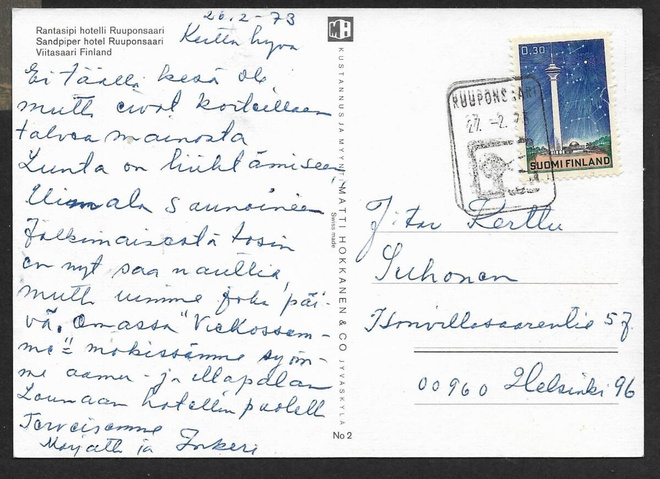 Rantasipi hotelli Ruuponsaari
Sandpiper hotel Ruuponsaari
Viitasaari Finland
26.2-73
Kerttu hyvä
Ei täällä kesä ole
mutta eivät kotteillaan
talvea mainosta
Lunta on
Uimala saunoineen
Jälkimäisestä tosin
en nyt saa nauttia,
mutta uimme joka päi-
vä. Omassa "
me" mökissämme syöm-
me aamu- ja iltapalan
Lounaan hotellin puolell
Terveisemme
Marjatta ja Inkeri
MH
KUSTANNUS JA MYYNTI MATTI HOKKANEN & CO JYVÄSKYLÄ
Swiss made
No 2
RUUPONSAARI
27.-2.73
0.30
SUOMI FINLAND
Kerttu
Suhonen
57.
00960 Helsinki 96